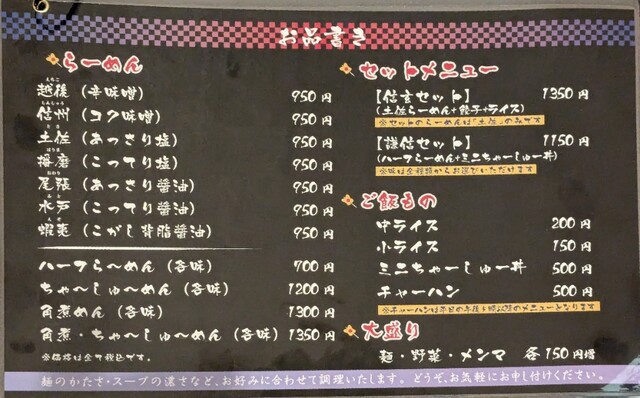 お品書き
らーめん
えちご
越後（辛味噌） 950円
しんしゅう
信州（コク味噌） 950円
とさ
土佐（あっさり塩） 950円
はりま
播磨（こってり塩） 950円
おわり
尾張（あっさり醤油） 950円
みと
水戸（こってり醤油） 950円
えぞ
蝦夷（こがし背脂醤油） 950円
ハーフら〜めん（各味） 700円
ちゃ〜しゅ〜めん（各味） 1200円
角煮めん（各味） 1300円
角煮・ちゃ〜しゅ〜めん（各味） 1350円
※価格は全て税込です。
セットメニュー
【信玄セット】 1350円
（土佐らーめん+餃子+ライス）
※セットのらーめんは「土佐」のみです
【謙信セット】 1150円
（ハーフらーめん+ミニちゃーしゅー丼）
※味は全種類からお選びいただけます
ご飯もの
中ライス 200円
小ライス 150円
ミニちゃーしゅー丼 500円
チャーハン 500円
大盛り
麺・野菜・メンマ 各150円増
麺のかたさ・スープの濃さなど、お好みに合わせて調理いたします。どうぞ、お気軽にお申し付けください。